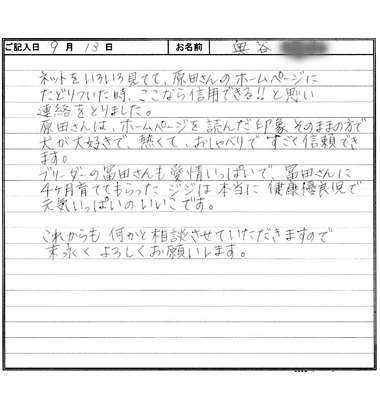 ご記入日 9 月 13 日 お名前 奥谷
ネットをいろいろ見てて、原田さんのホームページに
たどりついた時、ここなら信用できる!!と思い
連絡をとりました。
原田さんは、ホームページを読んだ印象そのままの方で
犬が大好きで、熱くて、おしゃべりですごく信頼でき
ます。
ブリーダーの冨田さんも愛情いっぱいで、冨田さんに
4ヶ月育ててもらったジジは本当に健康優良児で
元気いっぱいのいいこです。
これからも何かと相談させていただきますので
末永くよろしくお願いします。